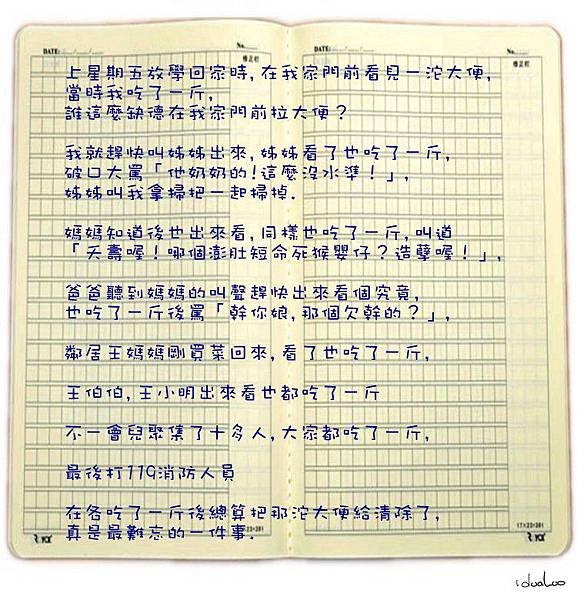 DATE: No.
DATE: No.
修正欄
修正欄
上星期五放學回家時,在我家門前看見一沱大便,
當時我吃了一斤,
誰這麼缺德在我家門前拉大便？
我就趕快叫姊姊出來,姊姊看了也吃了一斤,
破口大罵「他奶奶的!這麼沒水準！」,
姊姊叫我拿掃把一起掃掉.
媽媽知道後也出來看,同樣也吃了一斤,叫道
「夭壽喔！哪個澎肚短命死猴嬰仔？造孽喔！」,
爸爸聽到媽媽的叫聲趕快出來看個究竟,
也吃了一斤後罵「幹你娘,那個欠幹的？」,
鄰居王媽媽剛買菜回來,看了也吃了一斤,
王伯伯,王小明出來看也都吃了一斤
不一會兒聚集了十多人,大家都吃了一斤,
最後打119消防人員
在各吃了一斤後總算把那沱大便給清除了,
真是最難忘的一件事.
17×23=391